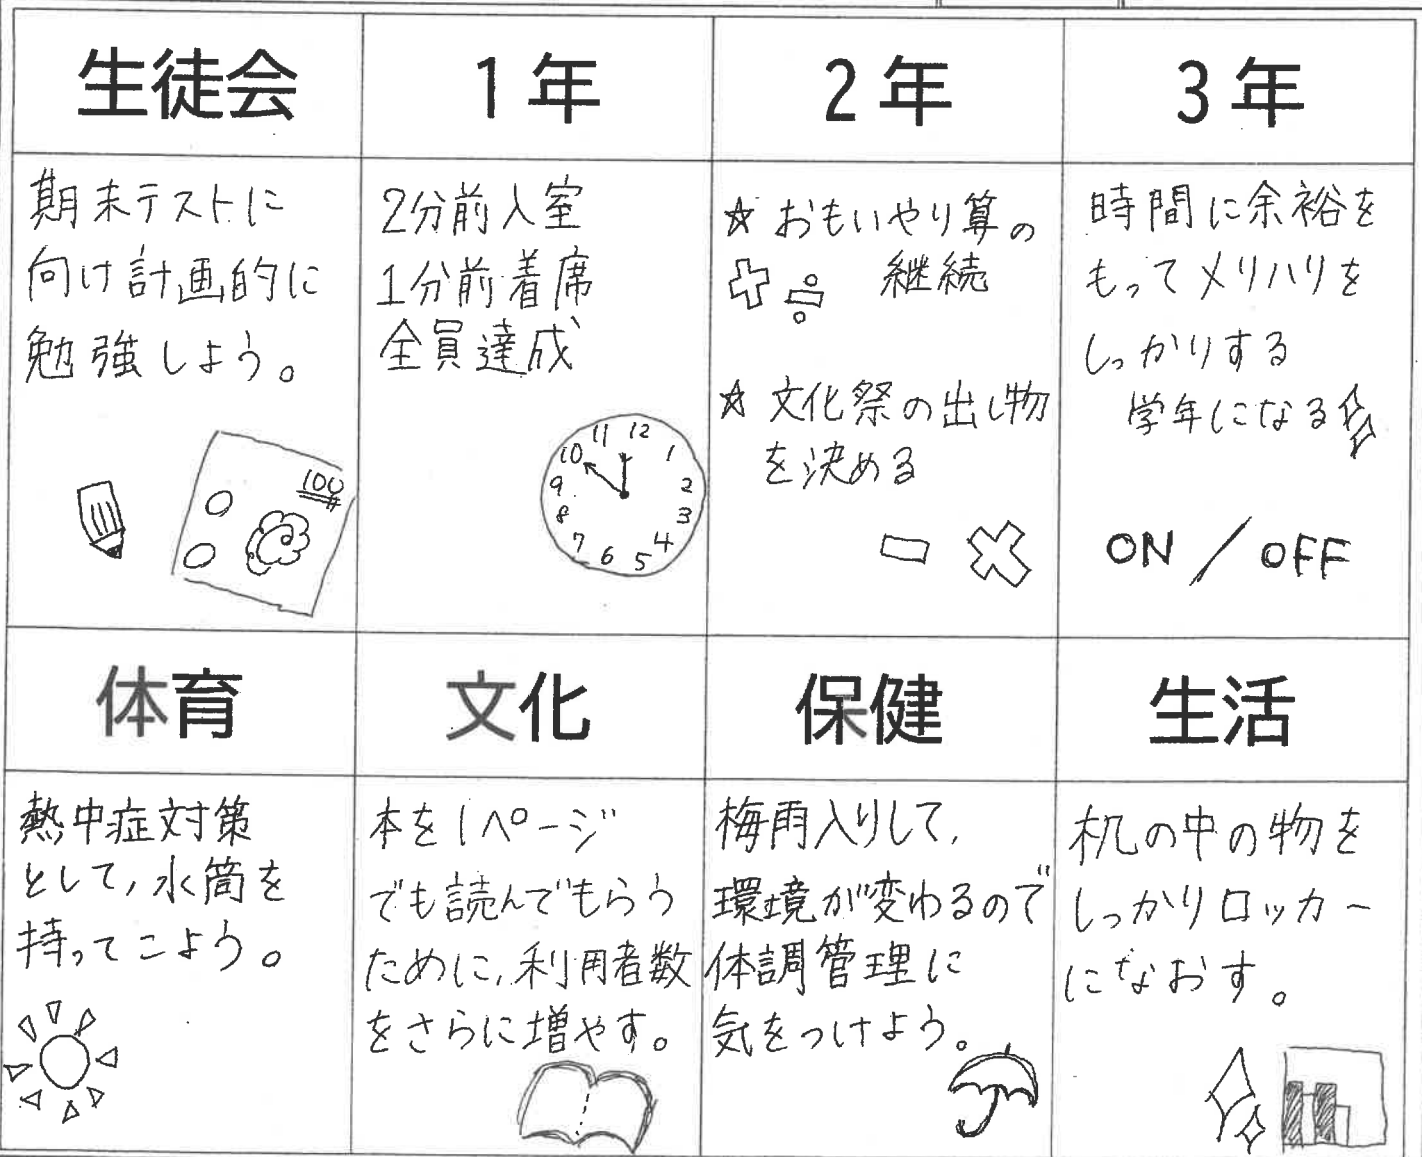 生徒会
1年
2年
3年
期末テストに
向け計画的に
勉強しよう。
100
2分前入室
1分前着席
全員達成
11 12 1
10 2
9 3
8 4
7 6 5
☆おもいやり算の
継続
☆文化祭の出し物
を決める
時間に余裕を
もってメリハリを
しっかりする
学年になる
ON / OFF
体育
文化
保健
生活
熱中症対策
として,水筒を
持ってこよう。
本を1ページ
でも読んでもらう
ために,利用者数
をさらに増やす。
梅雨入りして,
環境が変わるので
体調管理に
気をつけよう。
机の中の物を
しっかりロッカー
になおす。